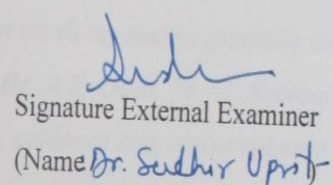 Signature External Examiner
(Name Dr. Sudhir